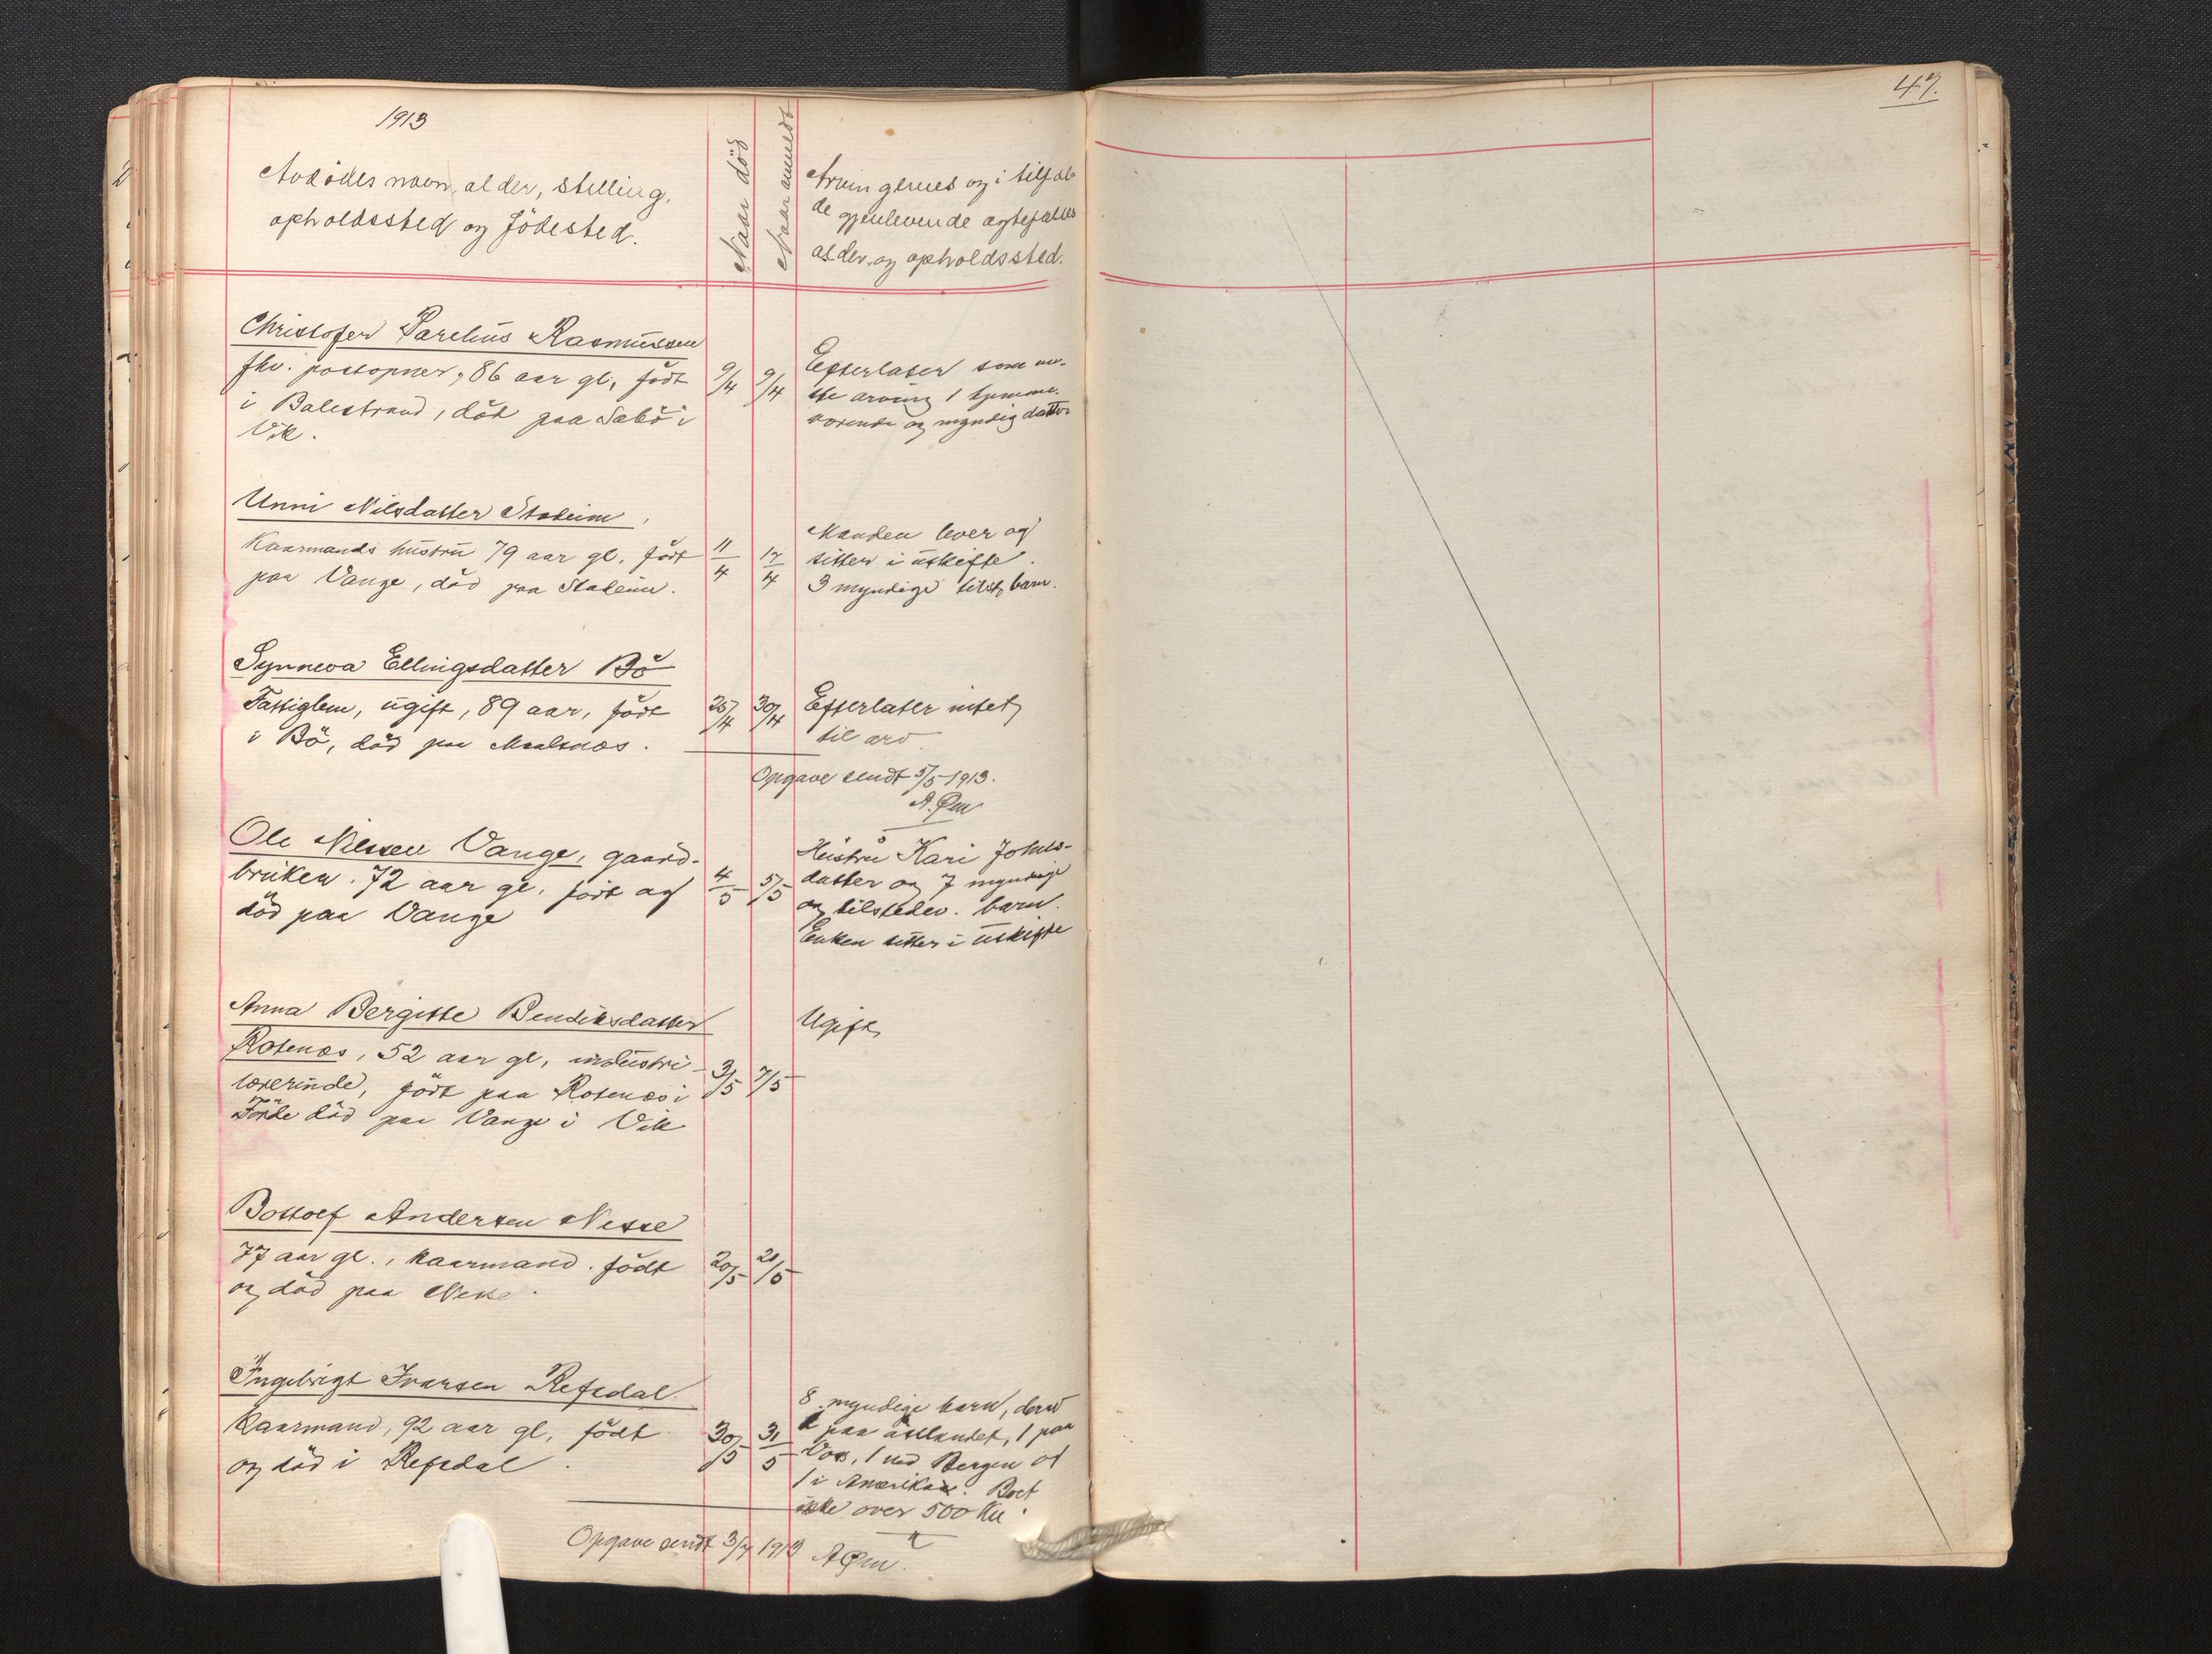 1913
47.
Avdödes navn, alder, stilling,
opholdssted og födested.
Naar död
Naar anmeldt
Arvingernes og i tilfæl-
de gjenlevende ægtefælles
alder og opholdssted.
Christofer Parelius Rasmussen
fhv. postopner, 86 aar gl, födt
i Balestrand, död paa Sæbö i
Vik.
9/4 9/4
Efterlater som ene-
ste arving 1 hjemme-
værende og myndig datter
Unni Nilsdatter Stadeim,
Kaarmands hustru 79 aar gl. födt
paa Vange, död paa Stadeim.
11/4 12/4
Manden lever og
sitter i uskifte.
3 myndige tilst. barn.
Synneva Ellingsdatter Bö
Fattiglem, ugift, 89 aar, födt
i Bö, död paa Maalsnæs.
25/4 30/4
Efterlater intet
til arv
Opgave sendt 5/5 1913.
A. Øen
Ole Nilssen Vange, gaard-
bruker. 72 aar gl. födt og
död paa Vange
4/5 5/5
Hustru Kari Johns-
datter og 7 myndige
og tilstedev. barn.
Enken sitter i uskifte
Anna Bergitte Bendiksdatter
Rotenæs, 52 aar gl, industri-
lærerinde, födt paa Rotenæs i
Förde död paa Vange i Vik
3/5 7/5
Ugift
Bottolf Andersen Nesse
77 aar gl., kaarmand. födt
og död paa Nesse.
20/5 21/5
Ingebrigt Ivarsen Refsdal
Kaarmand, 92 aar gl, födt
og död i Refsdal.
30/5 31/5
8 myndige barn, derav
paa östlandet, 1 paa
Vos, 1 ved Bergen og
1 i Amerika. Boet
ikke over 500 Kr.
Opgave sendt 3/7 1913 A Øen.